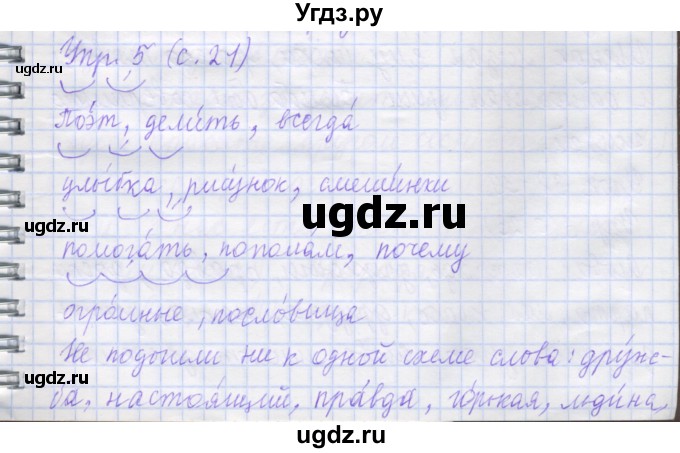 Угдз.ру
Упр. 5 (с. 21)
ugdz.ru
поэ́т, дели́ть, всегда́
ugdz.ru
улы́бка, рису́нок, смеши́нки
ugdz.ru
ugdz.ru
помога́ть, попола́м, почему
огро́мные, посло́вица
Не подошли ни к одной схеме слова: дру́ж-
ugdz.ru
ба, настоя́щий, пра́вда, го́рькая, льди́на,
ugdz.ru